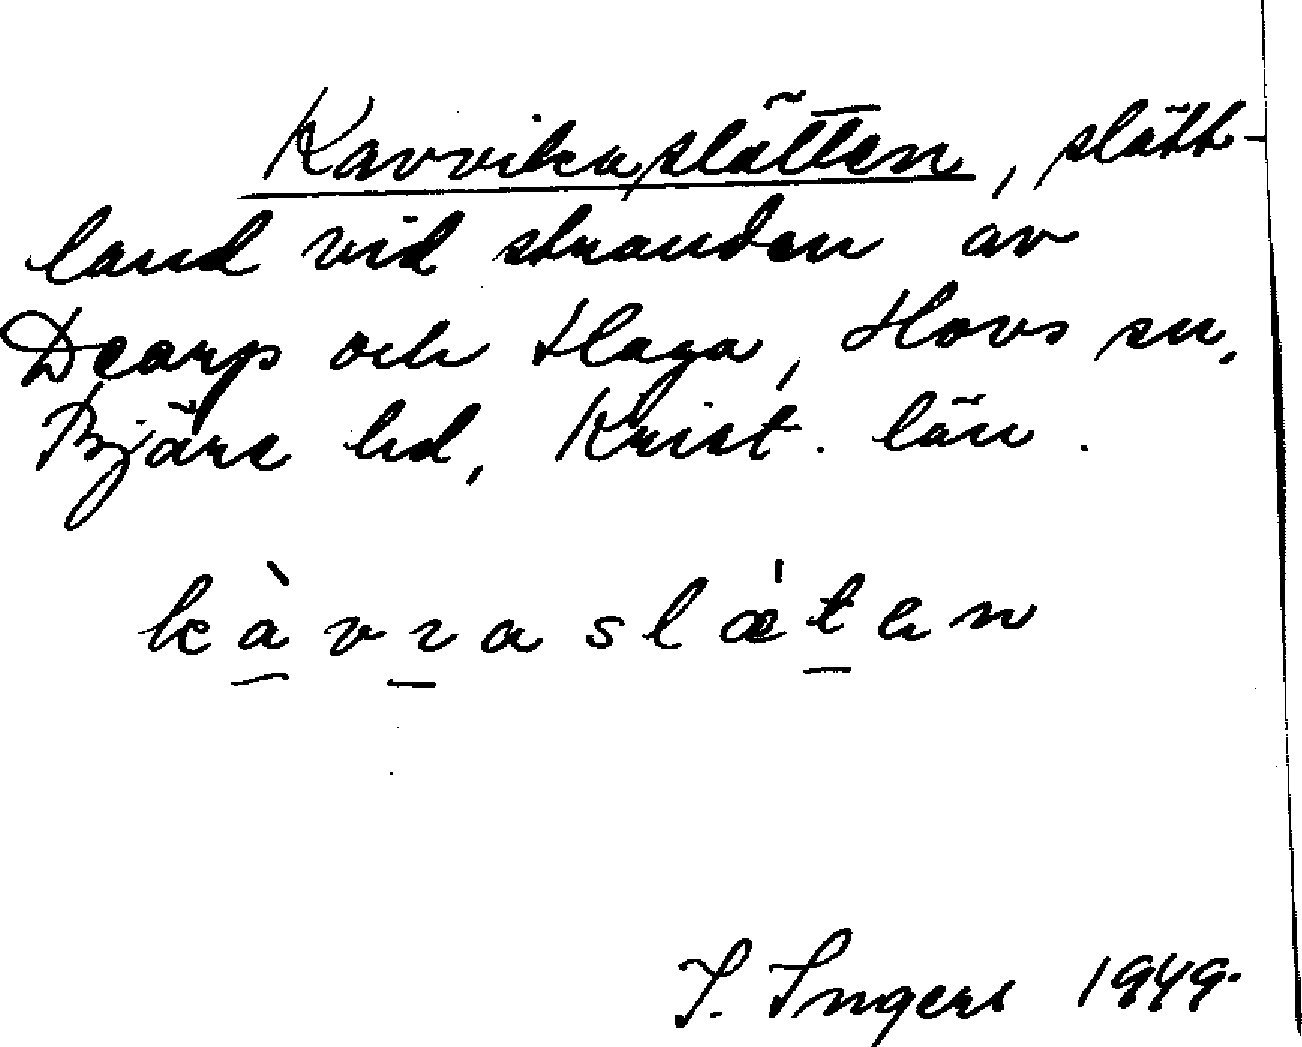 Kavvikaslätten, slätt-
land vid stranden av
Dearp och Haga, Hovs sn,
Bjäre hd, Krist. län.
kàvɿaslæ'ten
I. Ingers 1949.